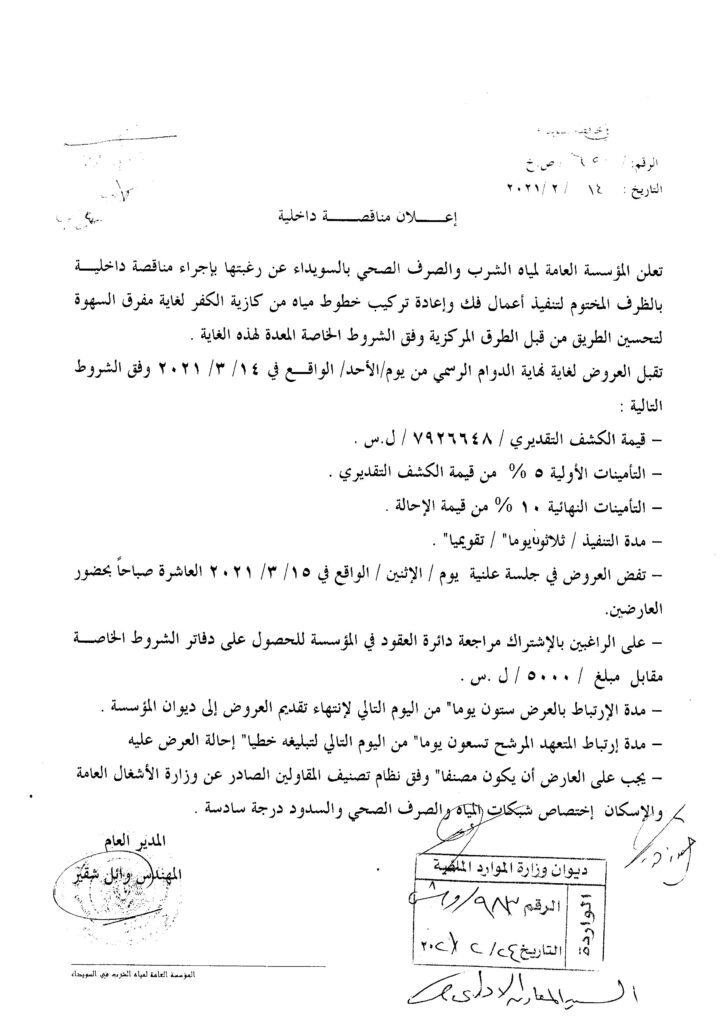 الرقم: / ص.خ
التاريخ : ١٤ / ٢ / ٢٠٢١
إعـــــلان مناقصـــــة داخلية
تعلن المؤسسة العامة لمياه الشرب والصرف الصحي بالسويداء عن رغبتها بإجراء مناقصة داخليـــة
بالظرف المختوم لتنفيذ أعمال فك وإعادة تركيب خطوط مياه من كازية الكفر لغاية مفرق السهوة
لتحسين الطريق من قبل الطرق المركزية وفق الشروط الخاصة المعدة لهذه الغاية .
تقبل العروض لغاية نهاية الدوام الرسمي من يوم/الأحد/ الواقـــع في ١٤ /٣ /٢٠٢١ وفق الشروط
التالية :
– قيمة الكشف التقديري / ٧٩٢٦٦٤٨ / ل.س .
– التأمينات الأولية ٥ % من قيمة الكشف التقديري .
– التأمينات النهائية ١٠ % من قيمة الإحالة .
– مدة التنفيذ / ثلاثون يوما" / تقويميا" .
– تفض العروض في جلسة علنية يوم / الإثنين / الواقع في ١٥ /٣ /٢٠٢١ العاشرة صباحاً بحضور
العارضين.
– على الراغبين بالإشتراك مراجعة دائرة العقود في المؤسسة للحصول على دفاتر الشروط الخاصـــة
مقابل مبلغ / ٥٠٠٠ / ل .س .
– مدة الإرتباط بالعرض ستون يوما" من اليوم التالي لإنتهاء تقديم العروض إلى ديوان المؤسسة .
– مدة إرتباط المتعهد المرشح تسعون يوما" من اليوم التالي لتبليغه خطيا" إحالة العرض عليه
– يجب على العارض أن يكون مصنفا" وفق نظام تصنيف المقاولين الصادر عن وزارة الأشغال العامة
والإسكان إختصاص شبكات المياه والصرف الصحي والسدود درجة سادسة .
المدير العام
المهندس وائل شقير
ديوان وزارة الموارد المائية
الواردة
الرقم ٩٨٣
التاريخ ٢٤ / ٢ / ٢٠٢١
السيد المعاون الإداري
المؤسسة العامة لمياه الشرب في السويداء